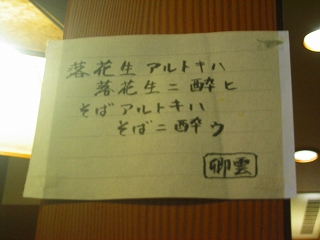 落花生アルトキハ
落花生ニ酔ヒ
そばアルトキハ
そばニ酔ウ
卿雲